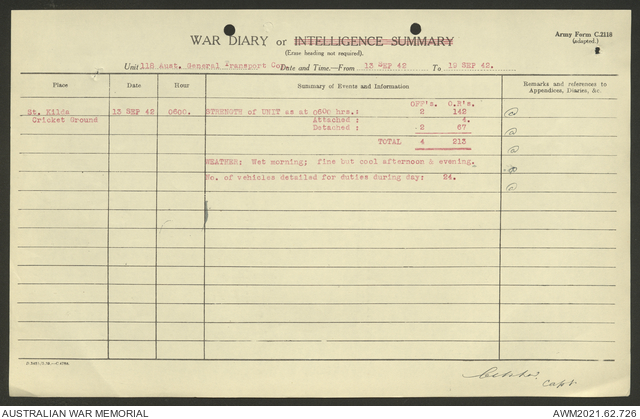 Army Form C.2118
(adapted.)
WAR DIARY or INTELLIGENCE SUMMARY
(Erase heading not required).
Unit 118 Aust. General Transport Coy Date and Time.—From 13 SEP 42 To 19 SEP 42.
Place Date Hour Summary of Events and Information Remarks and references to Appendices, Diaries, &c.
OFF's. O.R's.
St. Kilda 13 SEP 42 0600. STRENGTH of UNIT as at 0600 hrs.: 2 142
Cricket Ground Attached : 4.
Detached : 2 67
TOTAL 4 213
WEATHER: Wet morning; fine but cool afternoon & evening.
No. of vehicles detailed for duties during day: 24.
Capt.
AUSTRALIAN WAR MEMORIAL AWM2021.62.726